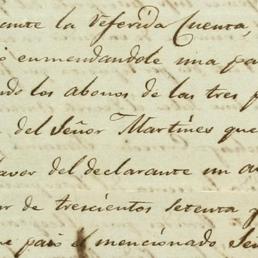 ante la referida Cuenta,
enmendandole una pa
do los abonos de las tres p
del Señor Martines que
avor del declarante un a
ar de trescientos setenta y
ue pasó el mencionado Señ